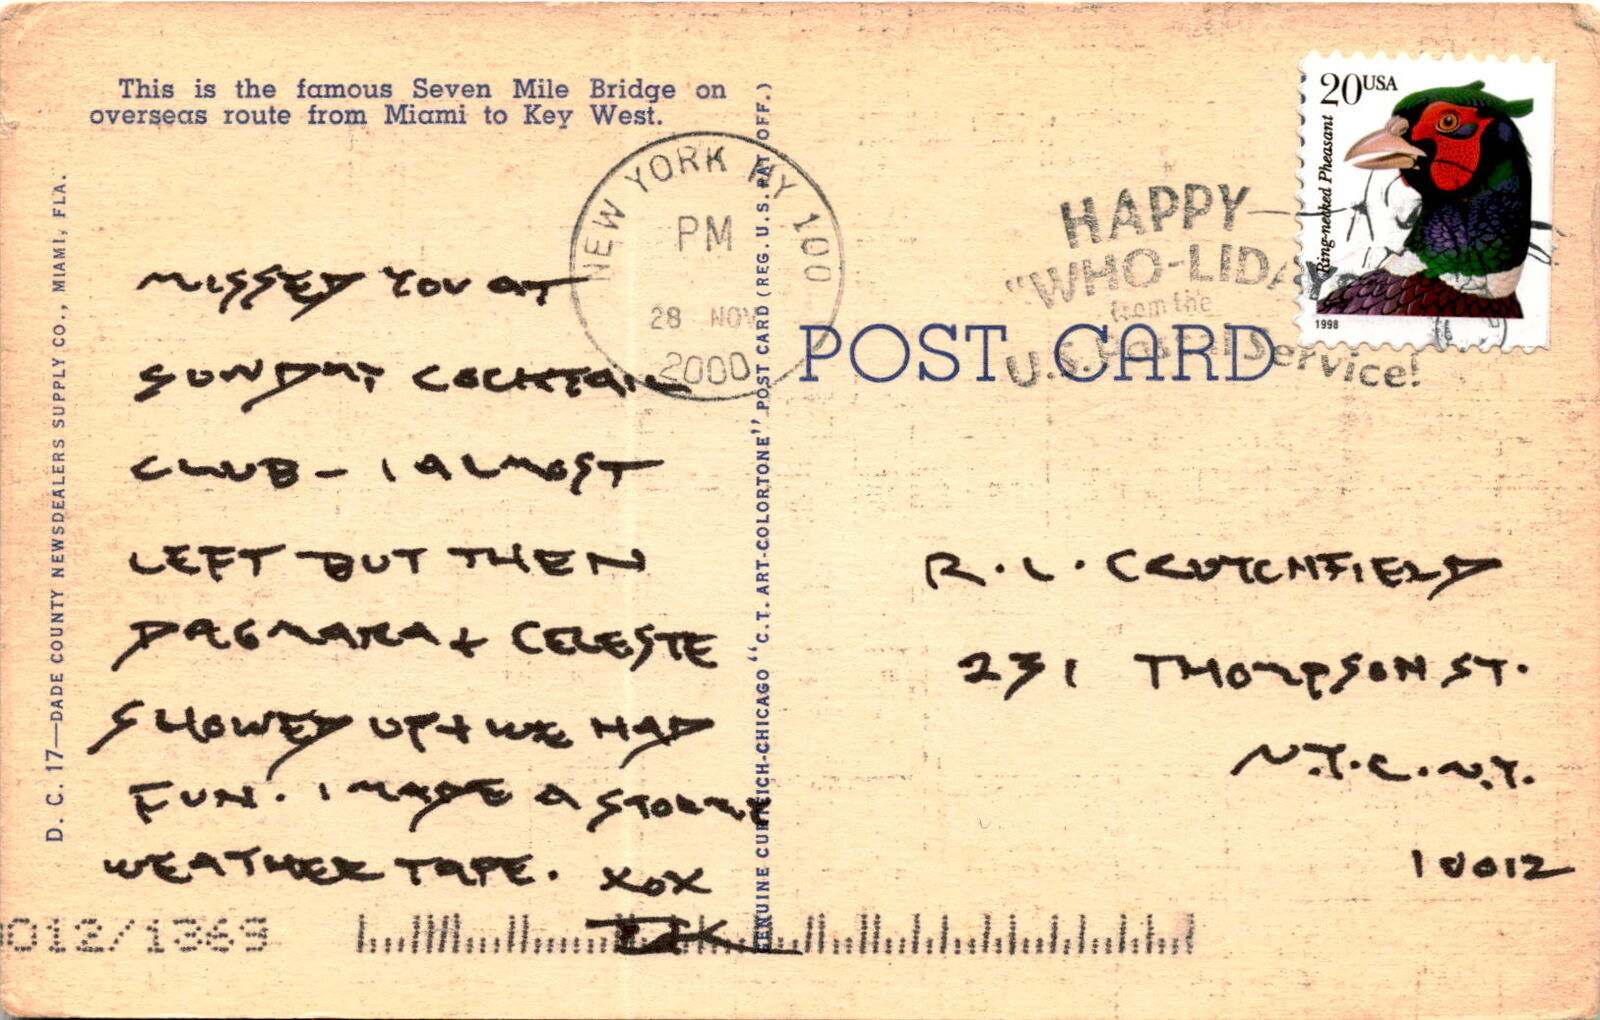 This is the famous Seven Mile Bridge on
overseas route from Miami to Key West.
D. C. 17—DADE COUNTY NEWSDEALERS SUPPLY CO., MIAMI, FLA.
MISSED YOU AT
SUNDAY COCKTAIL
CLUB – I ALMOST
LEFT BUT THEN
DAGMARA + CELESTE
SHOWED UP + WE HAD
FUN. I MADE A STORMY
WEATHER TAPE. XOX
GENUINE CURTEICH-CHICAGO "C.T. ART-COLORTONE" POST CARD (REG. U.S. PAT. OFF.)
NEW YORK NY 100
PM
28 NOV
2000
HAPPY
"WHO-LIDAYS"
from the
U.S. Postal Service!
20 USA
Ring-necked Pheasant
1998
POST CARD
R. L. CRUTCHFIELD
231 THOMPSON ST.
N.Y.C. N.Y.
10012
012/1369